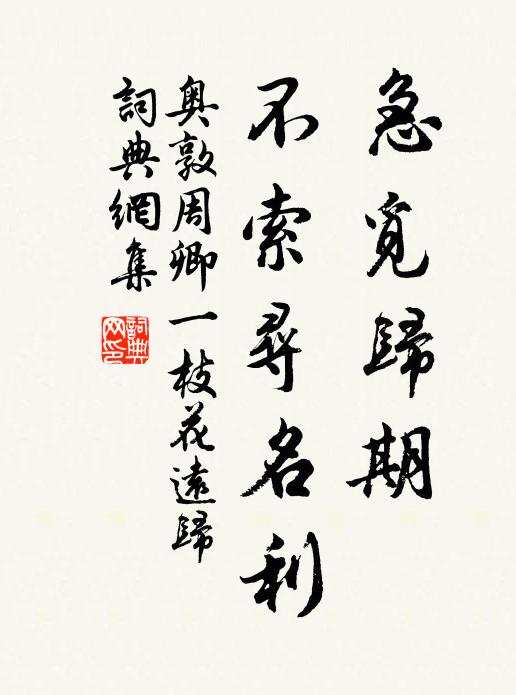 急覓歸期
不索尋名利
奥敦周卿一枝花遠歸
詞典網集
詞典網印